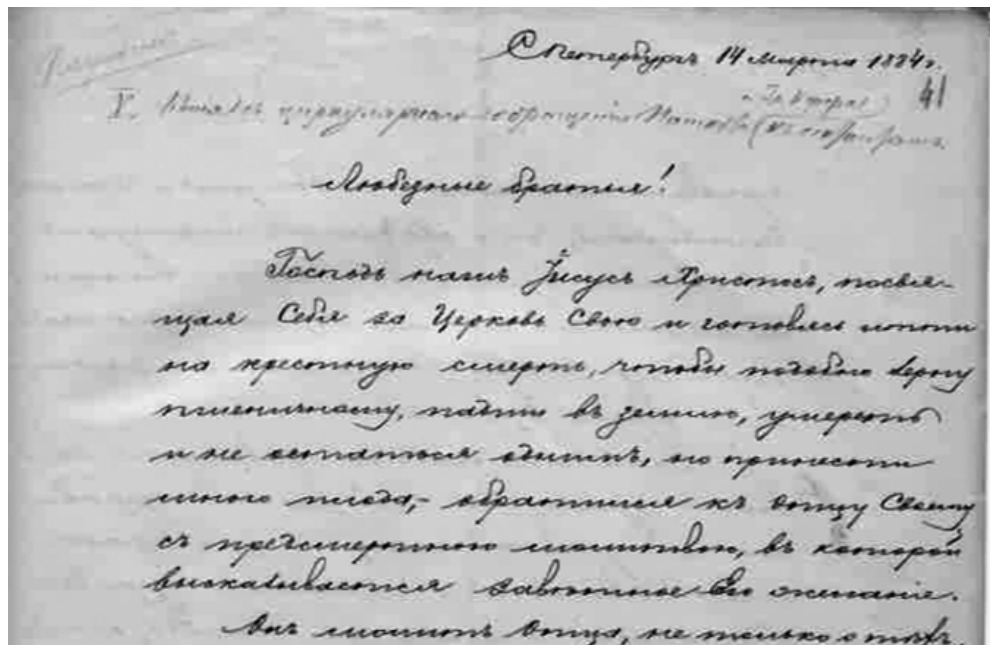 С Петербургъ 14 Марта 1884 г.
41
V.
Любезные братья!
Господь нашъ Іисусъ Христосъ, посвя-
щая Себя за Церковь Свою и готовясь идти
на крестную смерть, чтобы подобно зерну
пшеничному, падши въ землю, умереть
и не остаться однимъ, но принести
много плода, – обратился къ Отцу Своему
съ предсмертною молитвою, въ которой
высказывается завѣтное Его желаніе.
Онъ молитъ Отца, не только о тѣхъ,